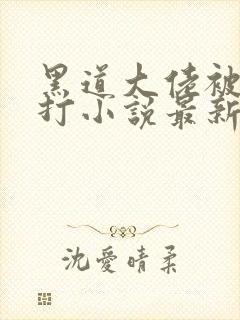 黑道大佬被
打小說最新
沈愛晴柔